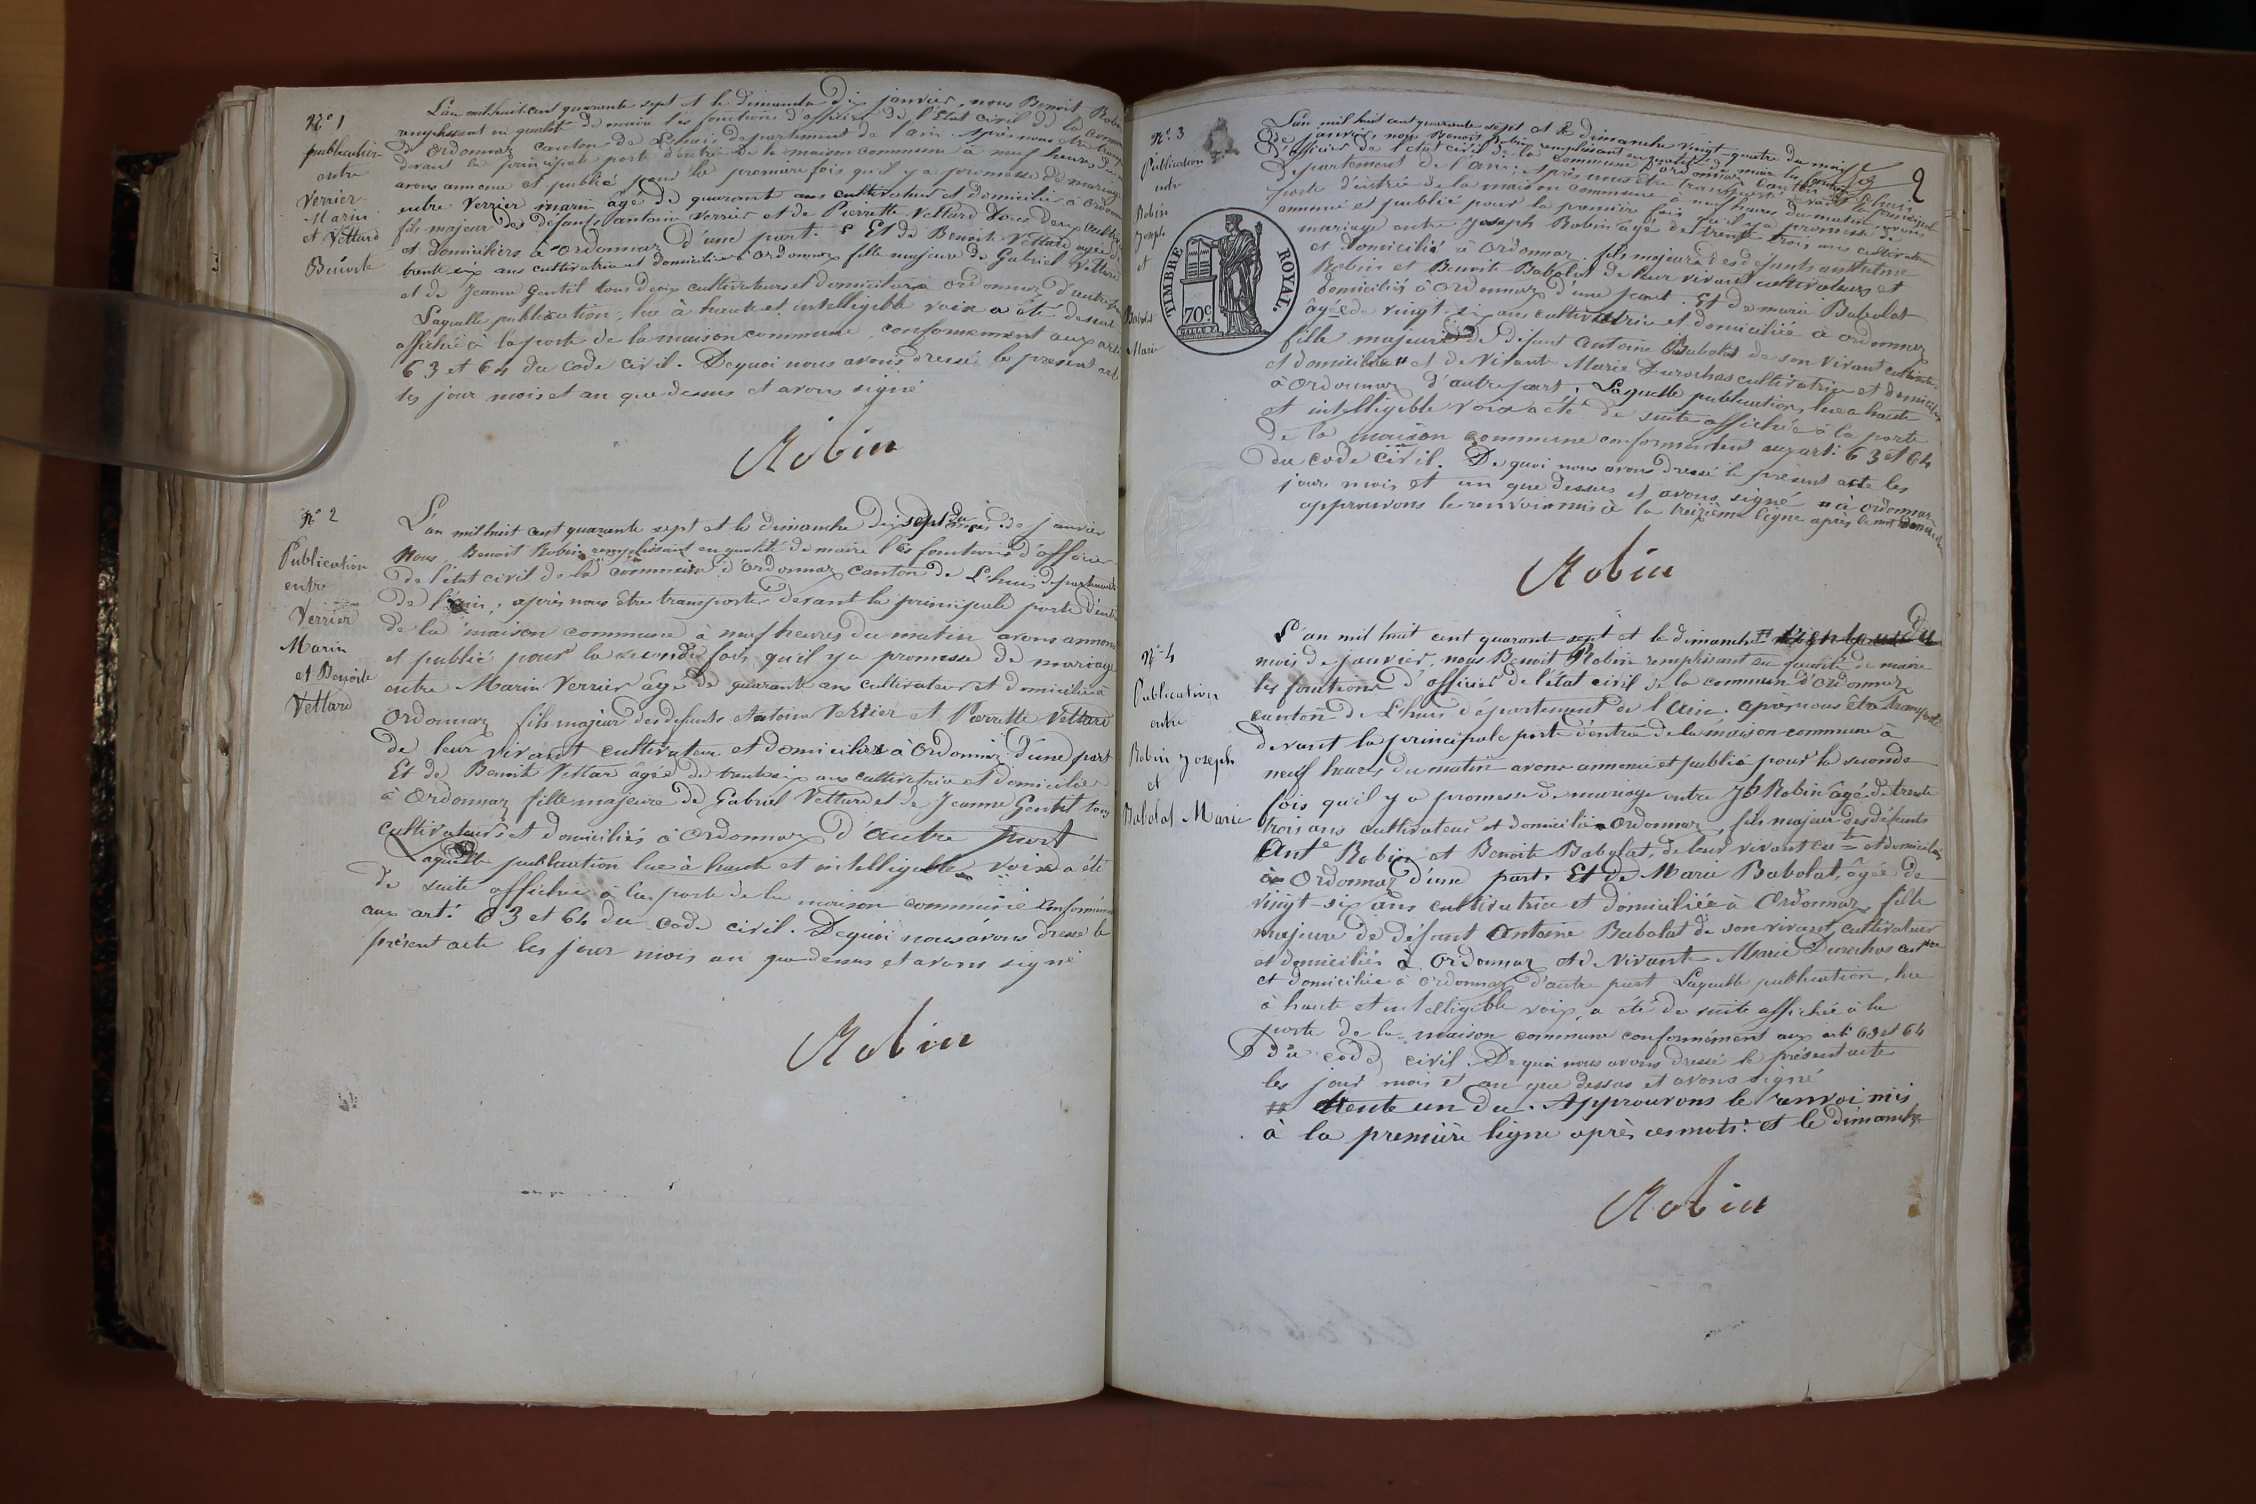 N° 1
publication
entre
Verrier
Marin
et Vettard
Benoite
L'an mil huit cent quarante sept et le dimanche dix janvier, nous Benoit Robin
remplissant en qualité de maire les fonctions d'officier de l'Etat civil de la commune
d'Ordonnaz canton de Lhuis departement de l'ain. Après nous être transporté
devant la principale porte d'entrée de la maison commune à neuf heures du
avons annoncé et publié pour la premiere fois qu'il y a promesse de mariage
entre Verrier marin âgé de quarant ans cultivateur et domicilié à Ordonnaz
fils majeur des défunts antoine Verrier et de Pierrette Vettard tous deux
et domiciliers à Ordonnaz d'une part. Et de Benoite Vettard agée de
trente six ans cultivatrice et domiciliée à Ordonnaz fille majeure de Gabriel Vettard
et de Jeanne Gentil tous deux cultivateurs et domiciliés à Ordonnaz d'autre part
Laquelle publication, lue à haute et intelligible voix a été de suite
affichée à la porte de la maison commune, conformement aux arts
63 et 64 du Code civil. De quoi nous avons dressé le présent acte
les jour mois et an que dessus et avons signé
Robin
N° 2
Publication
entre
Verrier
Marin
et Benoite
Vettard
L'an mil huit cent quarante sept et le dimanche dix sept du mois de janvier
Nous, Benoit Robin remplissant en qualité de maire les fonctions d'officier
de l'état civil de la commune d'Ordonnaz canton de Lhuis departement
de l'ain, après nous être transporter devant la principale porte d'entrée
de la maison commune à neuf heures du matin avons annoncé
et publié pour la seconde fois qu'il y a promesse de mariage
entre Marin Verrier âgé de quarante ans cultivateur et domicilié à
Ordonnaz fils majeur des defunts Antoine Verrier et Pierrette Vettard
de leur vivant cultivateur et domiciliés à Ordonnaz d'une part
Et de Benoite Vettar âgée de trente six ans cultivatrice et domiciliée
à Ordonnaz fille majeure de Gabriel Vettard et de Jeanne Gentil tous
cultivateurs et domiciliés à Ordonnaz d'autre part
Laquelle publication lue à haute et intelligible voix a été
de suite affichée à la porte de la maison commune conformément
aux art. 63 et 64 du code civil. De quoi nous avons dressé le
présent acte les jour mois an que dessus et avons signé
Robin
N° 3
Publication
entre
Robin
Joseph
et
Babolat
Marie
2
TIMBRE ROYAL.
70 c.
L'an mil huit cent quarante sept et le dimanche vingt quatre du mois
de janvier, nous Benoit Robin remplissant en qualité de maire les fonctions
d'officier de l'état civil de la commune d'Ordonnaz canton de Lhuis
departement de l'ain, après nous être transporté devant la principale
porte d'entrée de la maison commune à neuf heures du matin avons
annoncé et publié pour la première fois qu'il y a promesse de
mariage entre Joseph Robin âgé de trente trois ans cultivateur
et domicilié à Ordonnaz. fils majeur des defunts anthelme
Robin et Benoite Babolat de leur vivant cultivateurs et
domiciliés à Ordonnaz d'une part. Et de marie Babolat
âgée de vingt six ans cultivatrice et domiciliée à Ordonnaz
fille majeure de défunt Antoine Babolat de son vivant cultivateur
et domicilié " et de Vivante Marie Durochas cultivatrice et domiciliée
à Ordonnaz d'autre part, Laquelle publication, lue à haute
et intelligible voix a été de suite affichée à la porte
de la maison commune conformement aux art. 63 et 64
du code civil. De quoi nous avons dressé le présent acte les
jour mois et an que dessus et avons signé " à Ordonnaz
approuvons le renvoi mis à la treizième ligne après le mot domicilié
Robin
N° 4
Publication
entre
Robin Joseph
et
Babolat Marie
L'an mil huit cent quarante sept et le dimanche # trente un du
mois de janvier, nous Benoit Robin remplissant en qualité de maire
les fonctions d'officier de l'état civil de la commune d'Ordonnaz
canton de Lhuis département de l'Ain. après nous être transporté
devant la principale porte d'entrée de la maison commune à
neuf heures du matin avons annoncé et publié pour la seconde
fois qu'il y a promesse de mariage entre Jh Robin âgé de trente
trois ans cultivateur et domicilié à Ordonnaz, fils majeur des défunts
Ant.e Robin et Benoite Babolat, de leur vivant cult. et domiciliés
à Ordonnaz d'une part. Et de Marie Babolat, âgée de
vingt-six ans cultivatrice et domiciliée à Ordonnaz fille
majeure de défunt Antoine Babolat de son vivant cultivateur
et domiciliés à Ordonnaz et de Vivante Marie Durochas cult.ce
et domiciliée à Ordonnaz d'autre part Laquelle publication, lue
à haute et intelligible voix, a été de suite affichée à la
porte de la maison commune conformément aux art. 63 et 64
du code civil. De quoi nous avons dressé le présent acte
les jour mois et an que dessus et avons signé
# trente un du. Approuvons le renvoi mis
à la première ligne après ces mots: et le dimanche
Robin